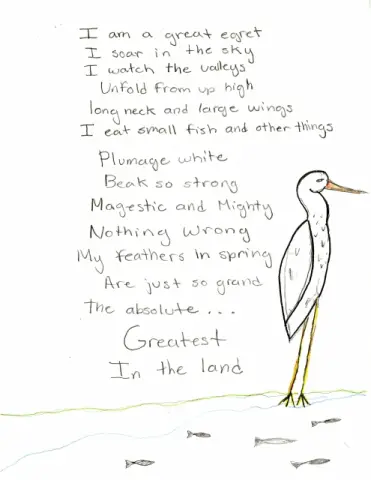 I am a great egret
I soar in the sky
I watch the valleys
Unfold from up high
long neck and large wings
I eat small fish and other things
Plumage white
Beak so strong
Magestic and Mighty
Nothing wrong
My feathers In spring
Are just so grand
The absolute ...
Greatest
In the land